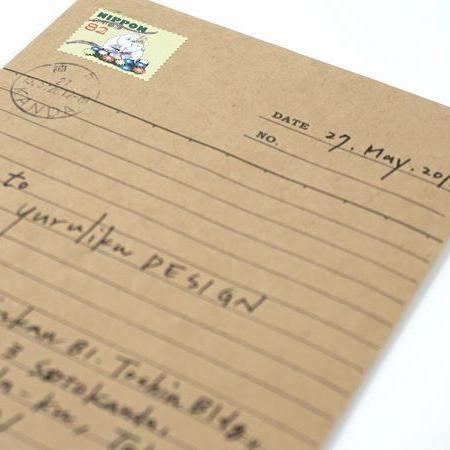 NIPPON
82
KANDA
DATE 27. May. 201
NO.
to
yuruliku DESIGN
B1. Toshin Bldg.
3 Sotokanda,
da-ku,